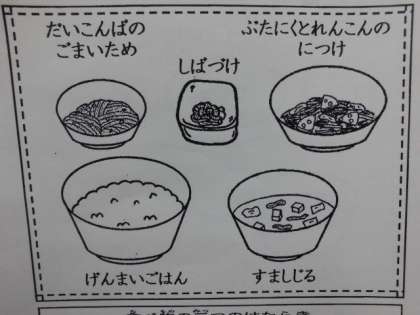 だいこんばの
ごまいため
しばづけ
ぶたにくとれんこんの
につけ
げんまいごはん
すましじる